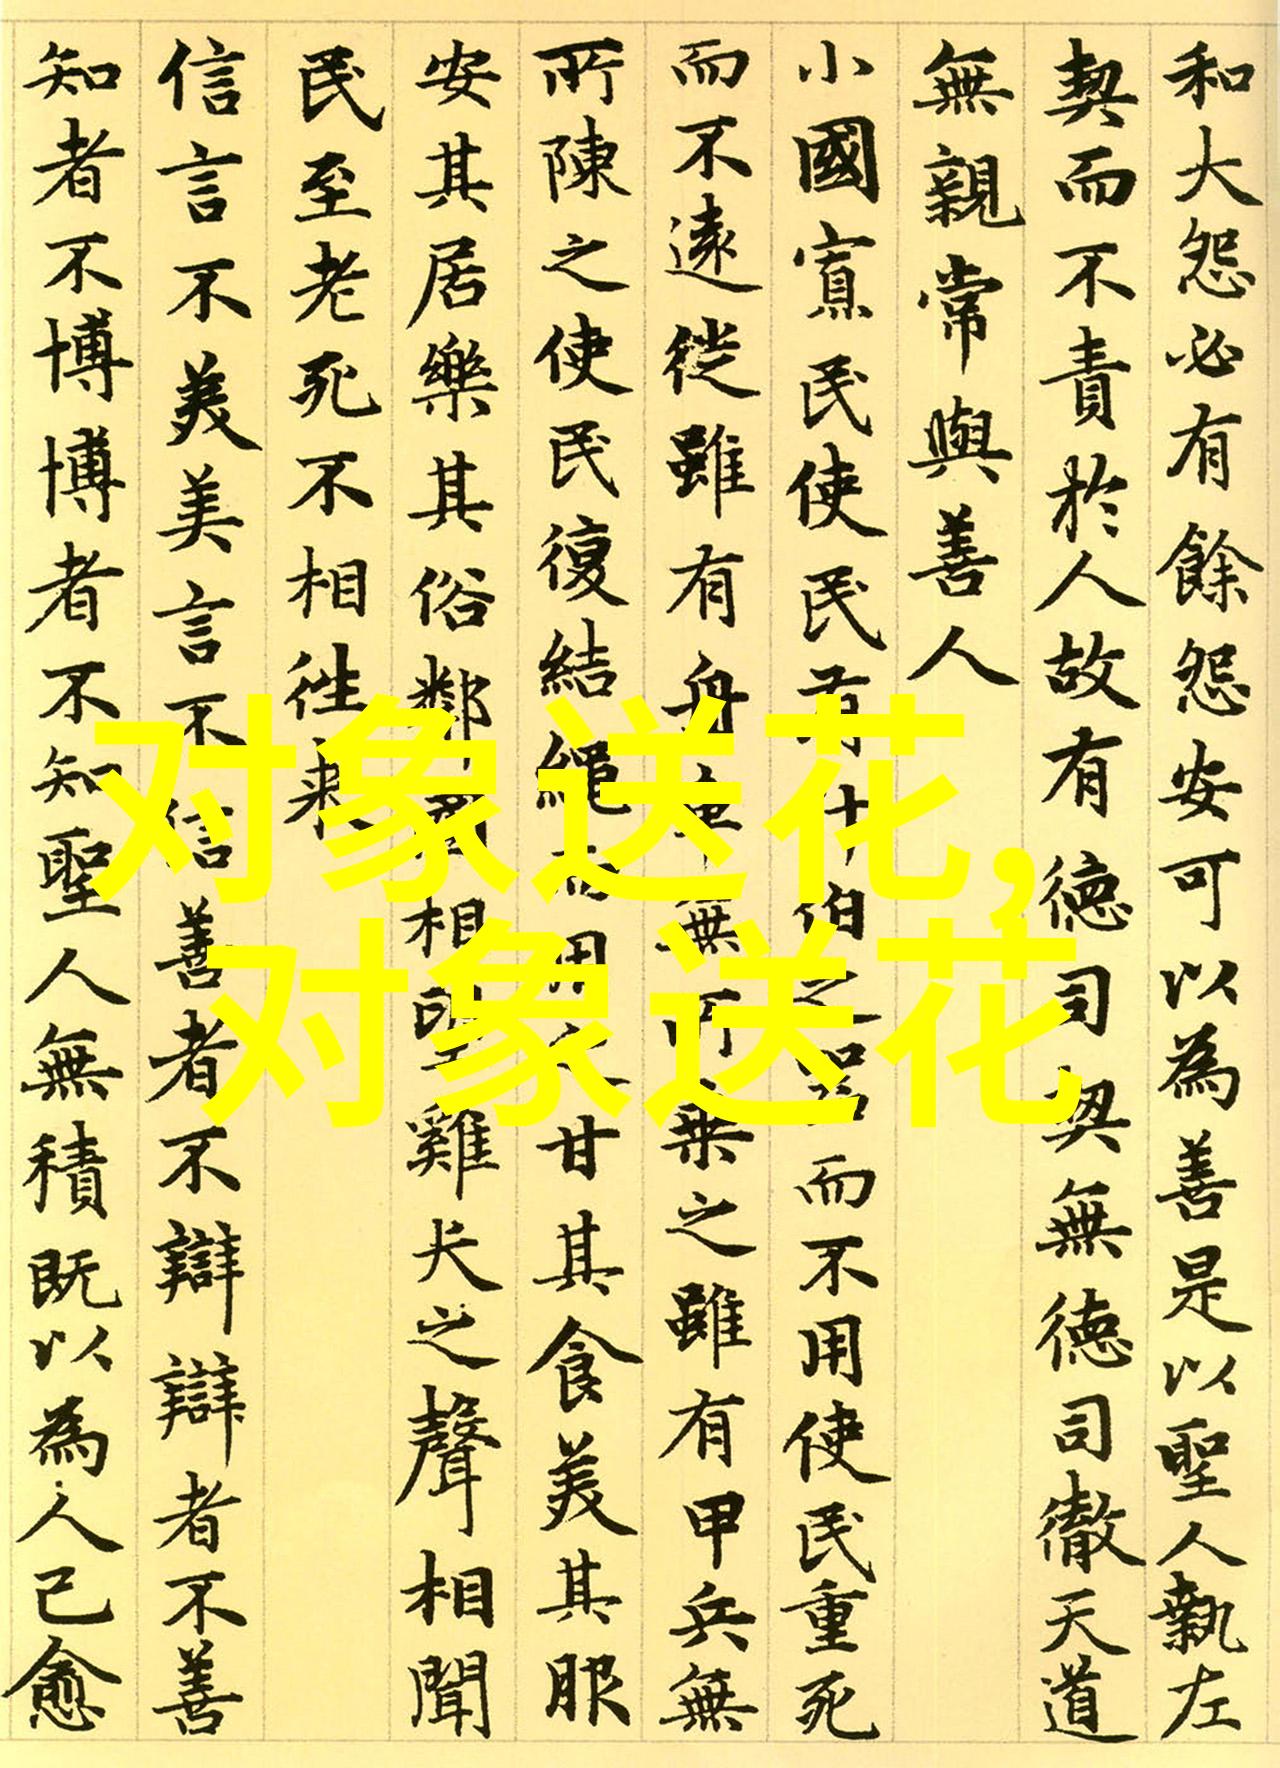 和大怨必有餘怨安可以為善是以聖人執左
契而不責於人故有德司契無德司徹天道
無親常與善人
小國寡民使民有什伯之器而不用使民重死
而不遠徙雖有舟車無所乗之雖有甲兵無
所陳之使民復結繩而用之甘其食美其服
安其居樂其俗鄰國相望雞犬之聲相聞
民至老死不相往来
信言不美美言不信善者不辯辯者不善
知者不博博者不知聖人無積既以為人己愈
对象送花,
对象送花